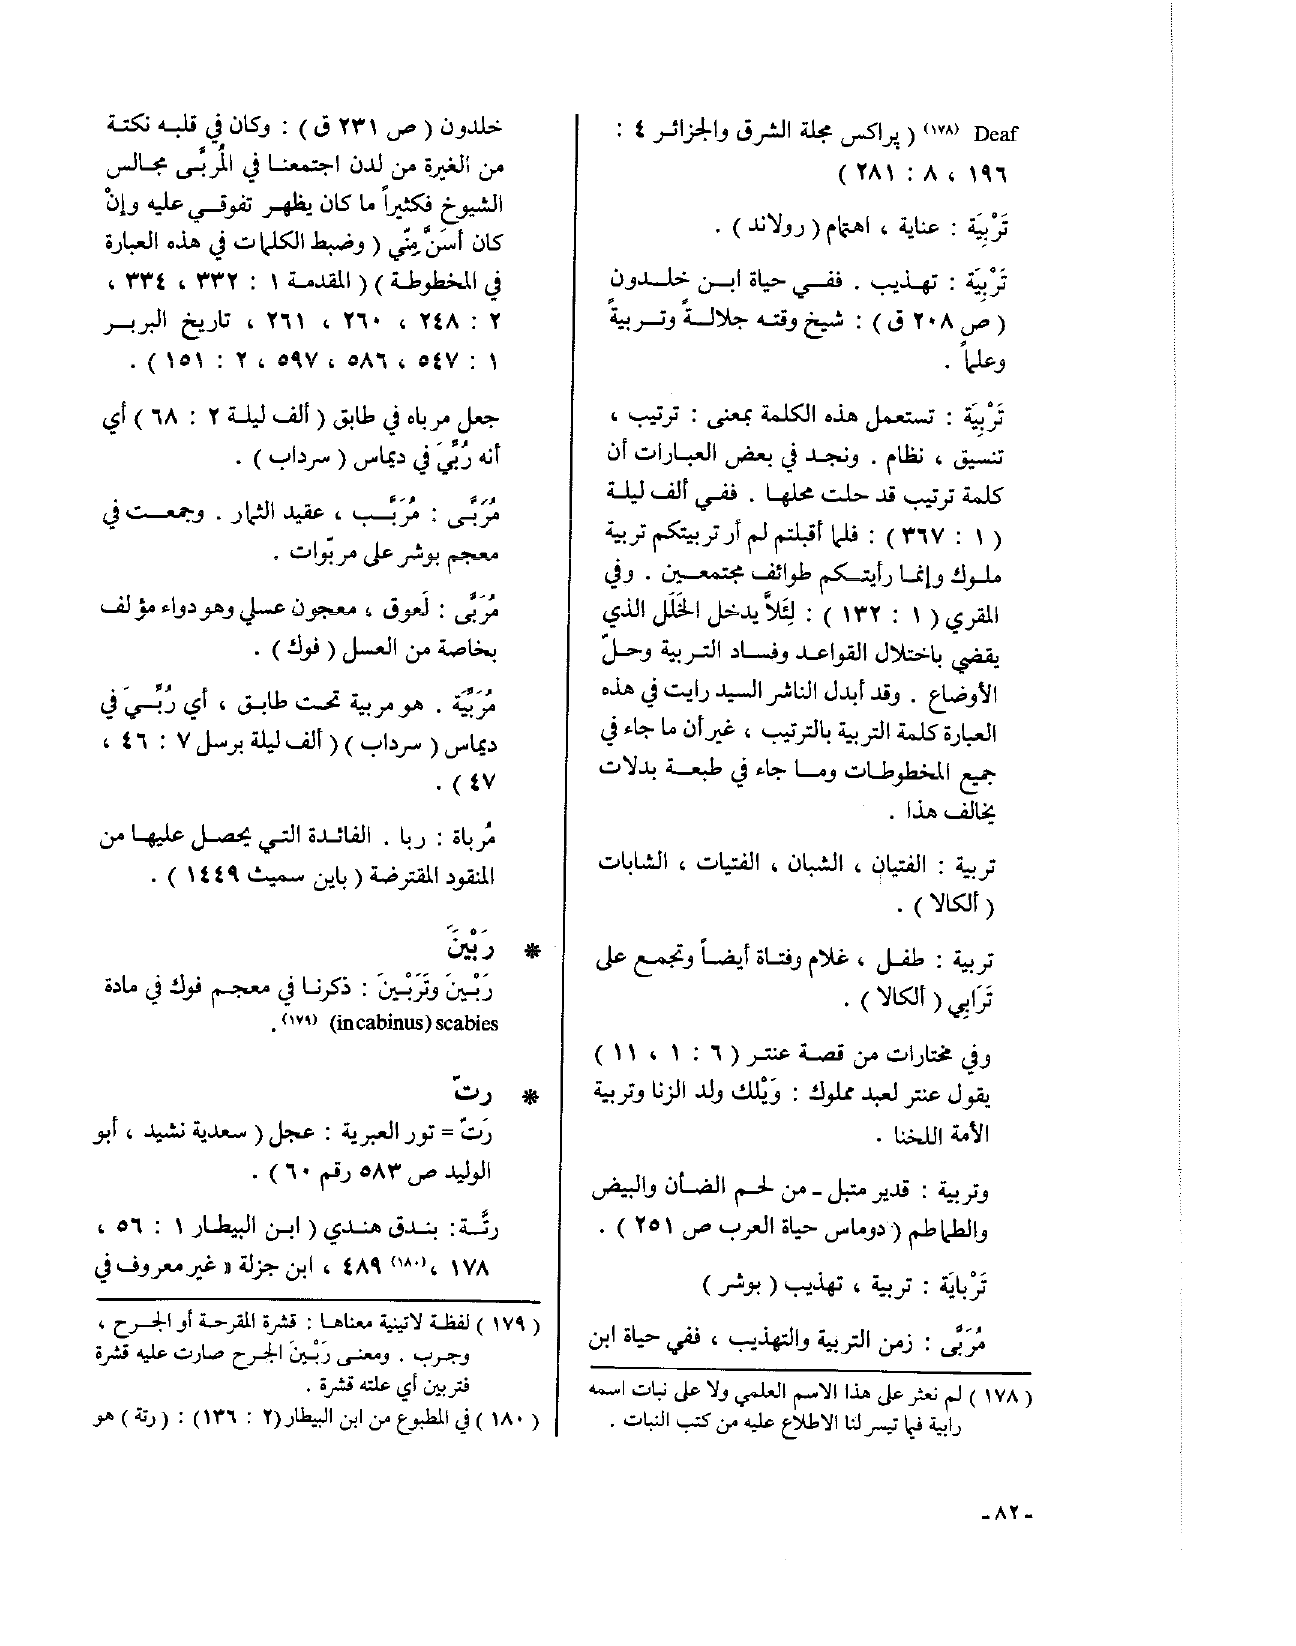 Deaf (١٧٨) ( پراكس مجلة الشرق والجزائر ٤ :
١٩٦ ، ٨ : ٢٨١ )
تَرْبِيَة : عناية ، اهتمام ( رولاند ) .
تَرْبِيَة : تهذيب . ففي حياة ابن خلدون
( ص ٢٠٨ ق ) : شيخ وقته جلالةً وتربيةً
وعلماً .
تَرْبِيَة : تستعمل هذه الكلمة بمعنى : ترتيب ،
تنسيق ، نظام . ونجد في بعض العبارات أن
كلمة ترتيب قد حلت محلها . ففي ألف ليلة
( ١ : ٣٦٧ ) : فلما أقبلتم لم أر تربيتكم تربية
ملوك وإنما رأيتكم طوائف مجتمعين . وفي
المقري ( ١ : ١٣٢ ) : لِئَلاَّ يدخل الخَلَل الذي
يقضي باختلال القواعد وفساد التربية وحلّ
الأوضاع . وقد أبدل الناشر السيد رايت في هذه
العبارة كلمة التربية بالترتيب ، غير أن ما جاء في
جميع المخطوطات وما جاء في طبعة بدلات
يخالف هذا .
تربية : الفتيان ، الشبان ، الفتيات ، الشابات
( ألكالا ) .
تربية : طفل ، غلام وفتاة أيضاً وتجمع على
تَرَابِي ( ألكالا ) .
وفي مختارات من قصة عنتر ( ٦ : ١ ، ١١ )
يقول عنتر لعبد مملوك : وَيْلك ولد الزنا وتربية
الأمة اللخنا .
وتربية : قدير متبل ـ من لحم الضأن والبيض
والطماطم ( دوماس حياة العرب ص ٢٥١ ) .
تَرْبايَة : تربية ، تهذيب ( بوشر )
مُرَبَّى : زمن التربية والتهذيب ، ففي حياة ابن
( ١٧٨ ) لم نعثر على هذا الاسم العلمي ولا على نبات اسمه
رابية فيما تيسر لنا الاطلاع عليه من كتب النبات .
خلدون ( ص ٢٣١ ق ) : وكان في قلبه نكتة
من الغيرة من لدن اجتمعنا في المُربَّى مجالس
الشيوخ فكثيراً ما كان يظهر تفوقي عليه وإنْ
كان أسَنَّ مِنِّي ( وضبط الكلمات في هذه العبارة
في المخطوطة ) ( المقدمة ١ : ٣٣٢ ، ٣٣٤ ،
٢ : ٢٤٨ ، ٢٦٠ ، ٢٦١ ، تاريخ البربر
١ : ٥٤٧ ، ٥٨٦ ، ٥٩٧ ، ٢ : ١٥١ ) .
جعل مرباه في طابق ( ألف ليلة ٢ : ٦٨ ) أي
أنه رُبِّيَ في ديماس ( سرداب ) .
مُرَبَّى : مُرَبَّب ، عقيد الثمار . وجمعت في
معجم بوشر على مربّوات .
مُرَبَّى : لَعوق ، معجون عسلي وهو دواء مؤلف
بخاصة من العسل ( فوك ) .
مُرَبَّيَة . هو مربية تحت طابق ، أي رُبِّيَ في
ديماس ( سرداب ) ( ألف ليلة برسل ٧ : ٤٦ ،
٤٧ ) .
مُرباة : ربا . الفائدة التي يحصل عليها من
النقود المقترضة ( باين سميث ١٤٤٩ ) .
* رَبْيَنَ
رَبْيَنَ وتَرَبْيَنَ : ذكرنا في معجم فوك في مادة
scabies (incabinus) (١٧٩) .
* رتّ
رَتّ = تور العبرية : عجل ( سعدية نشيد ، أبو
الوليد ص ٥٨٣ رقم ٦٠ ) .
رتَّة : بندق هندي ( ابن البيطار ١ : ٥٦ ،
١٧٨ ،(١٨٠) ٤٨٩ ، ابن جزلة « غير معروف في
( ١٧٩ ) لفظة لاتينية معناها : قشرة المقرحة أو الجرح ،
وجرب . ومعنى رَبْيَنَ الجرح صارت عليه قشرة
فتربين أي علته قشرة .
( ١٨٠ ) في المطبوع من ابن البيطار (٢ : ١٣٦) : ( رتة ) هو
- ٨٢ -